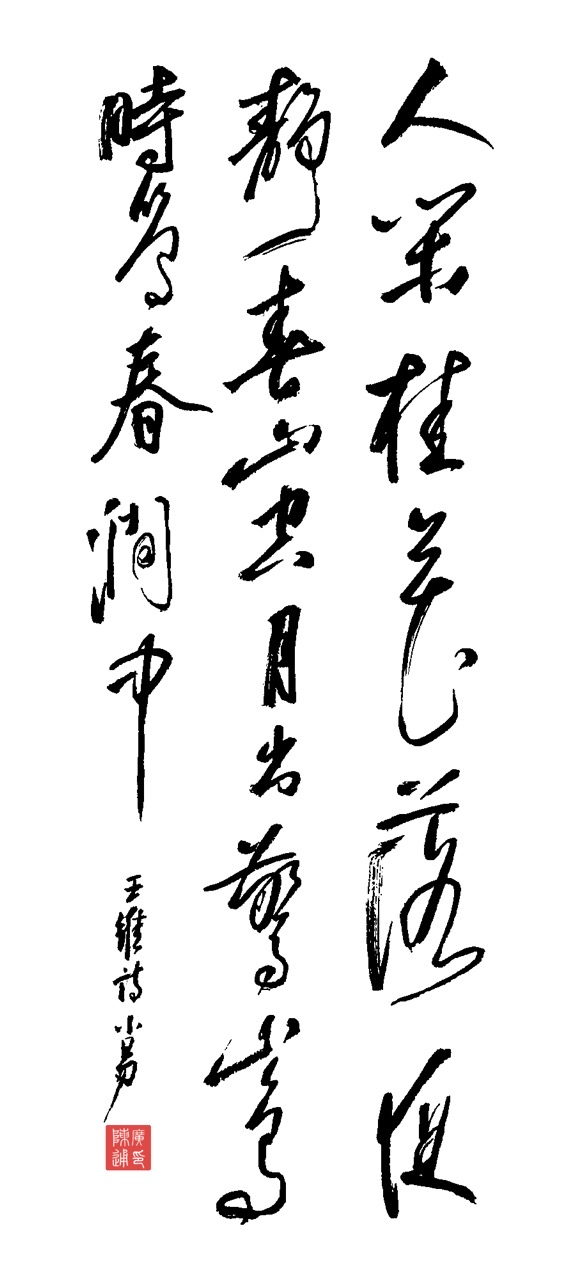 人閑桂花落夜
靜春山空月出驚山鳥
時鳴春澗中
王維詩